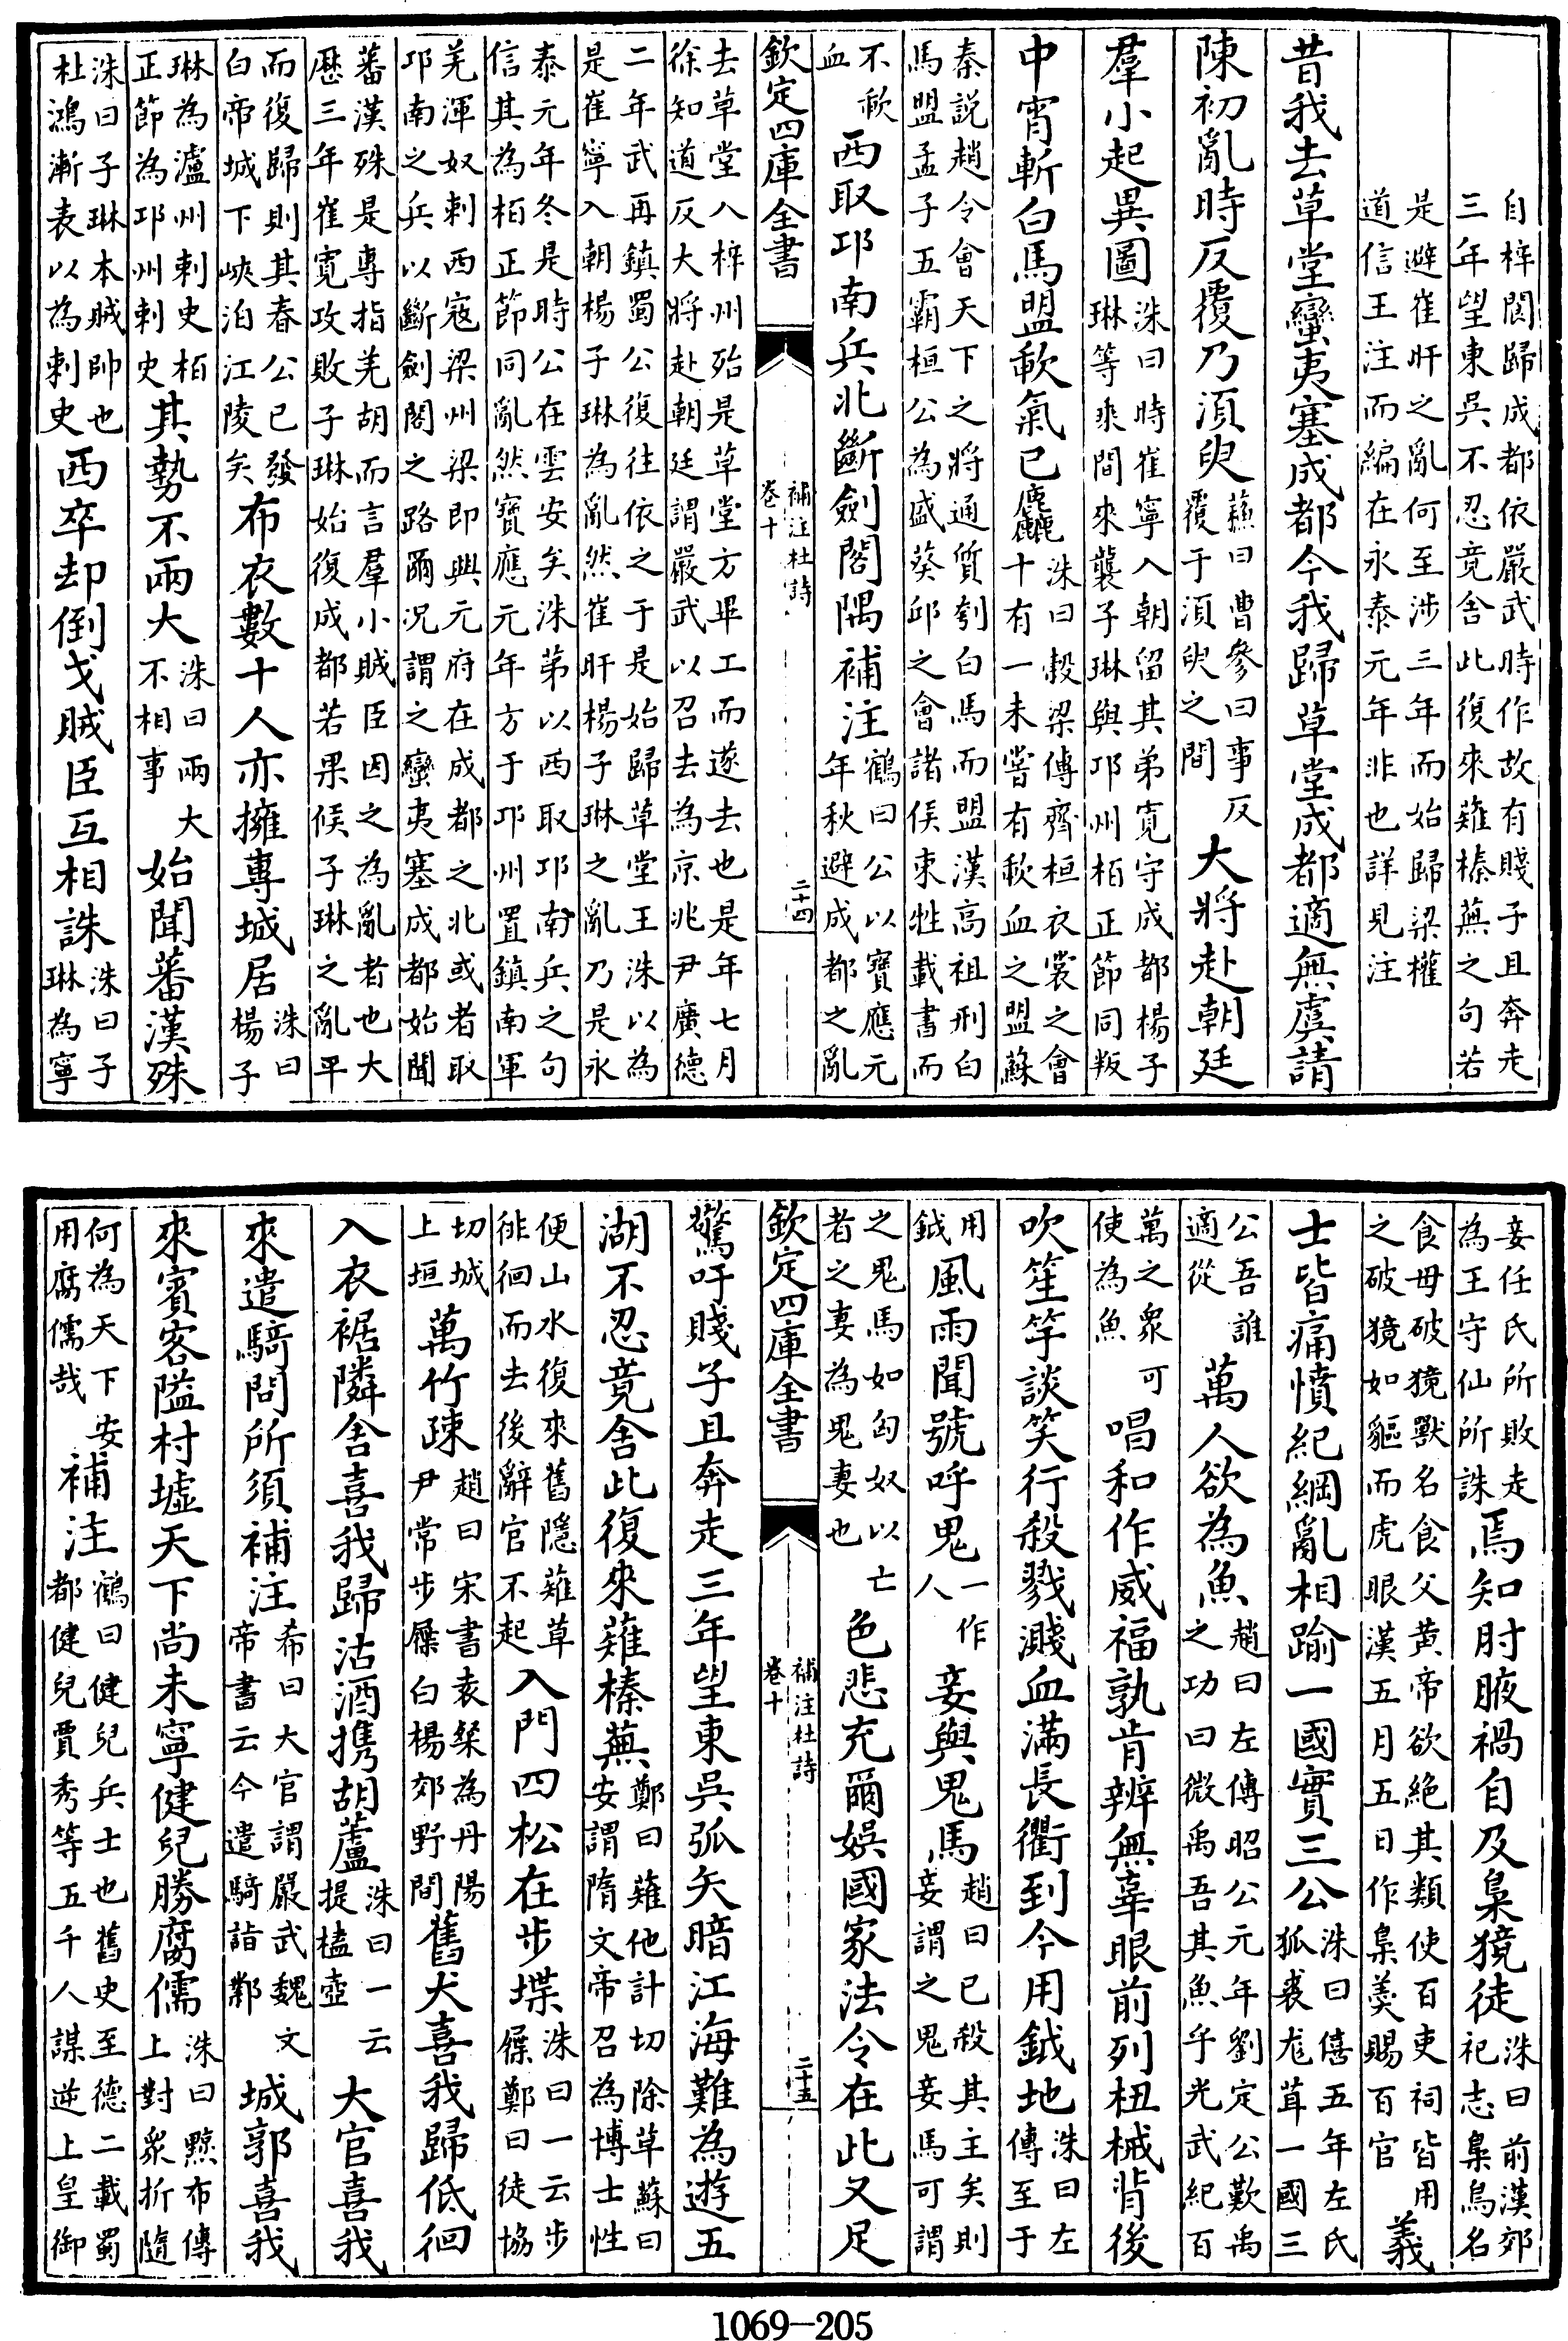 自梓閬歸成都依嚴武時作故有賤子且奔走
三年望東吳不忍竟舍此復來薙榛蕪之句若
是避崔旰之亂何至涉三年而始歸梁權
道信王注而編在永泰元年非也詳見注
昔我去草堂蠻夷塞成都今我歸草堂成都適無虞請
陳初亂時反覆乃須臾
蘇曰曹參曰事反
覆于須臾之間
大將赴朝廷
羣小起異圖
洙曰時崔寧入朝留其弟寛守成都楊子
琳等乘間來襲子琳與邛州柏正節同叛
中宵斬白馬盟歃氣已麤
洙曰穀梁傳齊桓衣裳之會
十有一未嘗有歃血之盟蘇
秦説趙令會天下之將通質刳白馬而盟漢高祖刑白
馬盟孟子五霸桓公為盛葵邱之會諸侯束牲載書而
不歃
血
西取邛南兵北斷劍閣隅補注
鶴曰公以寶應元
年秋避成都之亂
欽定四庫全書
補注杜詩
卷十
二十四
去草堂入梓州殆是草堂方畢工而遂去也是年七月
徐知道反大將赴朝廷謂嚴武以召去為京兆尹廣德
二年武再鎮蜀公復往依之于是始歸草堂王洙以為
是崔寧入朝楊子琳為亂然崔旰楊子琳之亂乃是永
泰元年冬是時公在雲安矣洙第以西取邛南兵之句
信其為柏正節同亂然寶應元年方于邛州置鎮南軍
羌渾奴剌西寇梁州梁即興元府在成都之北或者取
邛南之兵以斷劍閣之路爾况謂之蠻夷塞成都始聞
蕃漢殊是專指羌胡而言羣小賊臣因之為亂者也大
厯三年崔寛攻敗子琳始復成都若果候子琳之亂平
而復歸則其春公已發
白帝城下峽泊江陵矣
布衣數十人亦擁專城居
洙曰
楊子
琳為瀘州剌史柏
正節為邛州剌史
其勢不兩大
洙曰兩大
不相事
始聞蕃漢殊
洙曰子琳本賊帥也
杜鴻漸表以為剌史
西卒却倒戈賊臣互相誅
洙曰子
琳為寧
妾任氏所敗走
為王守仙所誅
焉知肘腋禍自及梟獍徒
洙曰前漢郊
祀志梟鳥名
食母破獍獸名食父黄帝欲絶其類使百吏祠皆用
之破獍如貙而虎眼漢五月五日作梟羮賜百官
義
士皆痛憤紀綱亂相踰一國實三公
洙曰僖五年左氏
狐裘尨茸一國三
公吾誰
適從
萬人欲為魚
趙曰左傳昭公元年劉定公歎禹
之功曰微禹吾其魚乎光武紀百
萬之衆可
使為魚
唱和作威福孰肯辨無辜眼前列杻械背後
吹笙竽談笑行殺戮濺血滿長衢到今用鉞地
洙曰左
傳至于
用
鉞
風雨聞號呼鬼
一作
人
妾與鬼馬
趙曰已殺其主矣則
妾謂之鬼妾馬可謂
之鬼馬如匈奴以亡
者之妻為鬼妻也
色悲充爾娛國家法令在此又足
欽定四庫全書
補注杜詩
卷十
二十五
驚吁賤子且奔走三年望東吳弧矢暗江海難為遊五
湖不忍竟舍此復來薙榛蕪
鄭曰薙他計切除草蘇曰
安謂隋文帝召為博士性
便山水復來舊隱薙草
徘徊而去後辭官不起
入門四松在步堞
洙曰一云步
屧鄭曰徒協
切城
上垣
萬竹疎
趙曰宋書袁粲為丹陽
尹常步屧白楊郊野間
舊犬喜我歸低徊
入衣裾隣舍喜我歸沽酒携胡蘆
洙曰一云
提榼壺
大官喜我
來遣騎問所須補注
希曰大官謂嚴武魏文
帝書云今遣騎詣鄴
城郭喜我
來賓客隘村墟天下尚未寧健兒勝腐儒
洙曰黥布傳
上對衆折隨
何為天下安
用腐儒哉
補注
鶴曰健兒兵士也舊史至德二載蜀
都健兒賈秀等五千人謀逆上皇御
1069—205